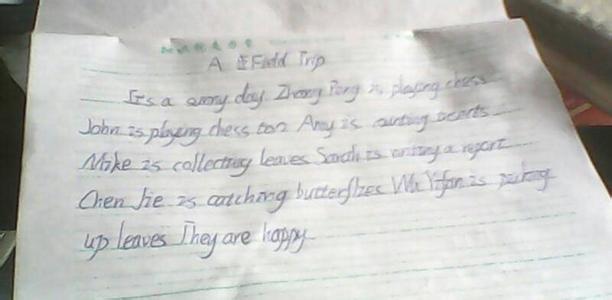 A Field Trip
It's a sunny day Zhang Peng is playing chess
John is playing chess too Amy is counting insects
Mike is collecting leaves Sarah is writing a report
Chen Jie is catching butterflies Wu Yifan is picking
up leaves They are happy